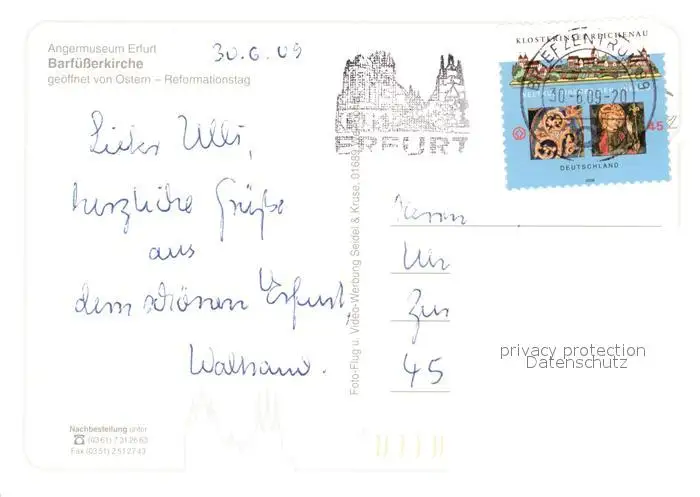 Angermuseum Erfurt
Barfüßerkirche
geöffnet von Ostern – Reformationstag
30.6.09
Lieber Ulli,
herzliche Grüße
aus
dem schönen Erfurt,
Nachbestellung unter
☎ (03 61) 7 31 26 63
Fax (03 51) 2 51 27 43
Foto-Flug u. Video-Werbung Seidel & Kruse, 01689
ERFURT
KLOSTERINSEL REICHENAU
BRIEFZENTRUM 99
30-6.09-20
45
DEUTSCHLAND
Herrn
45
privacy protection
Datenschutz